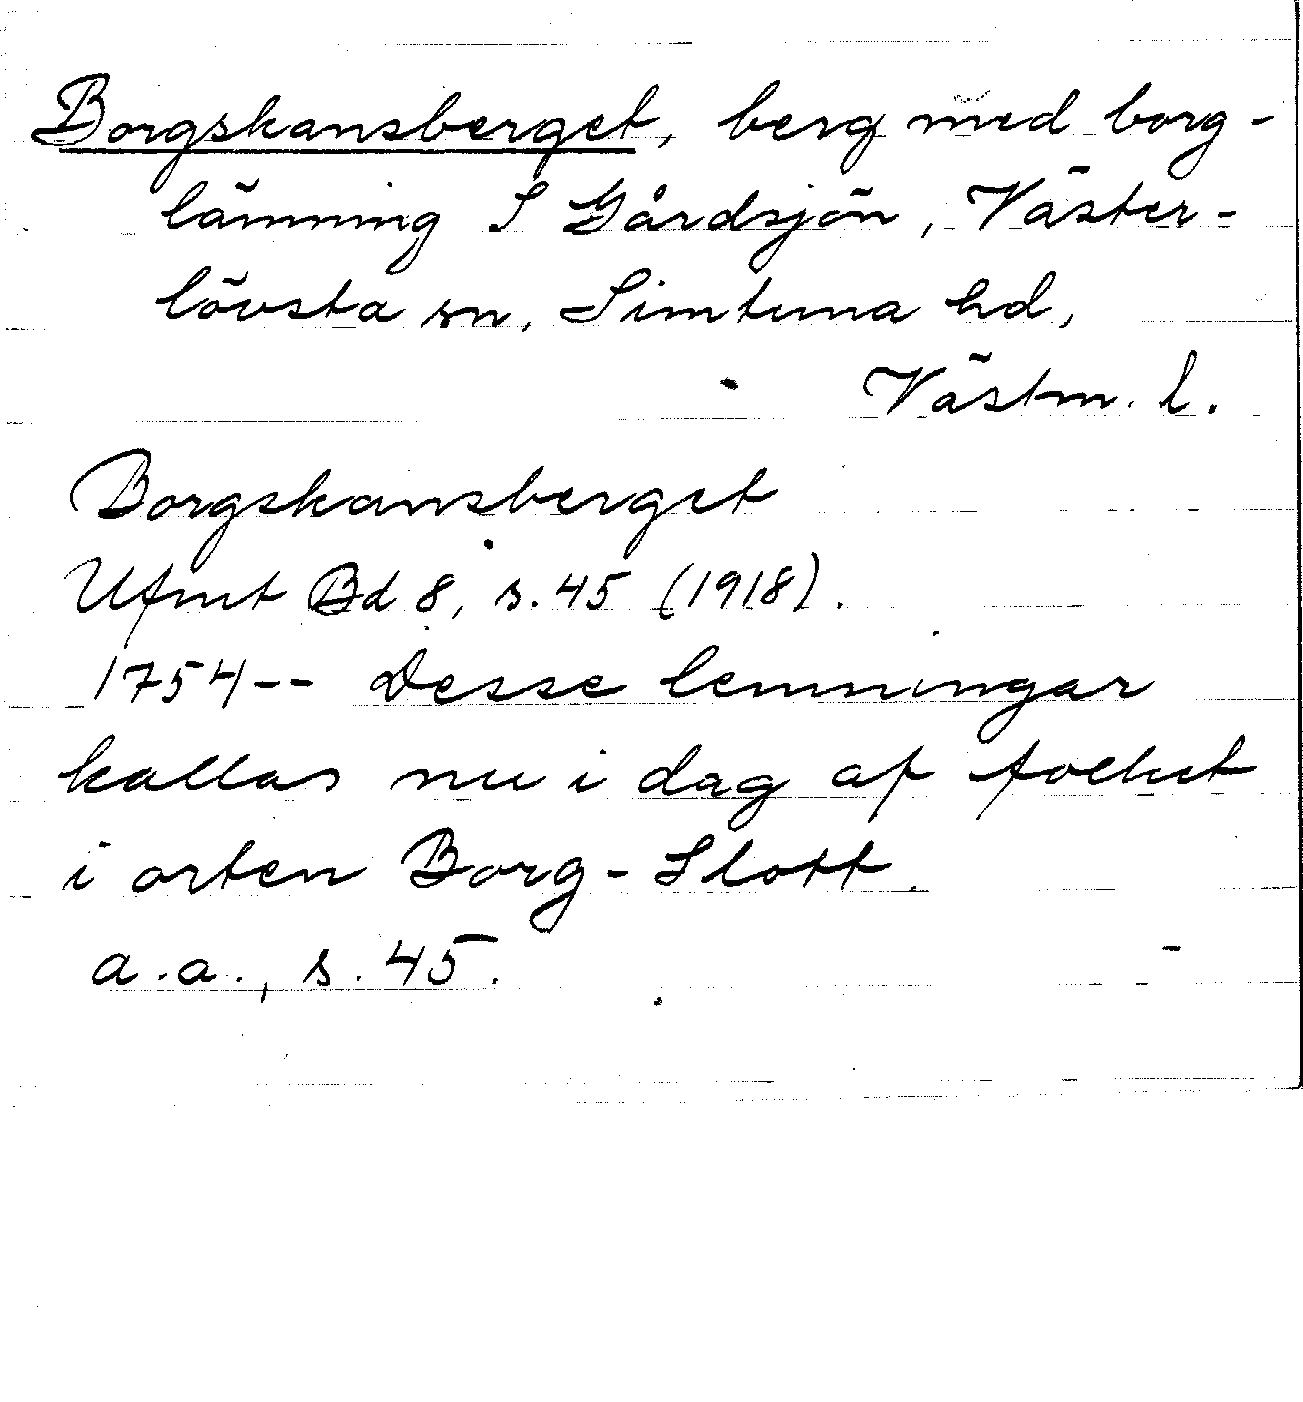 Borgskansberget, berg med borg-
lämning S Gårdsjön, Väster-
lövsta sn, Simtuna hd,
Västm. l.
Borgskansberget
Ufmt Bd 8, s. 45 (1918).
1754-- Desse lemningar
kallas nu i dag af folket
i orten Borg-Slott.
a.a., s. 45.